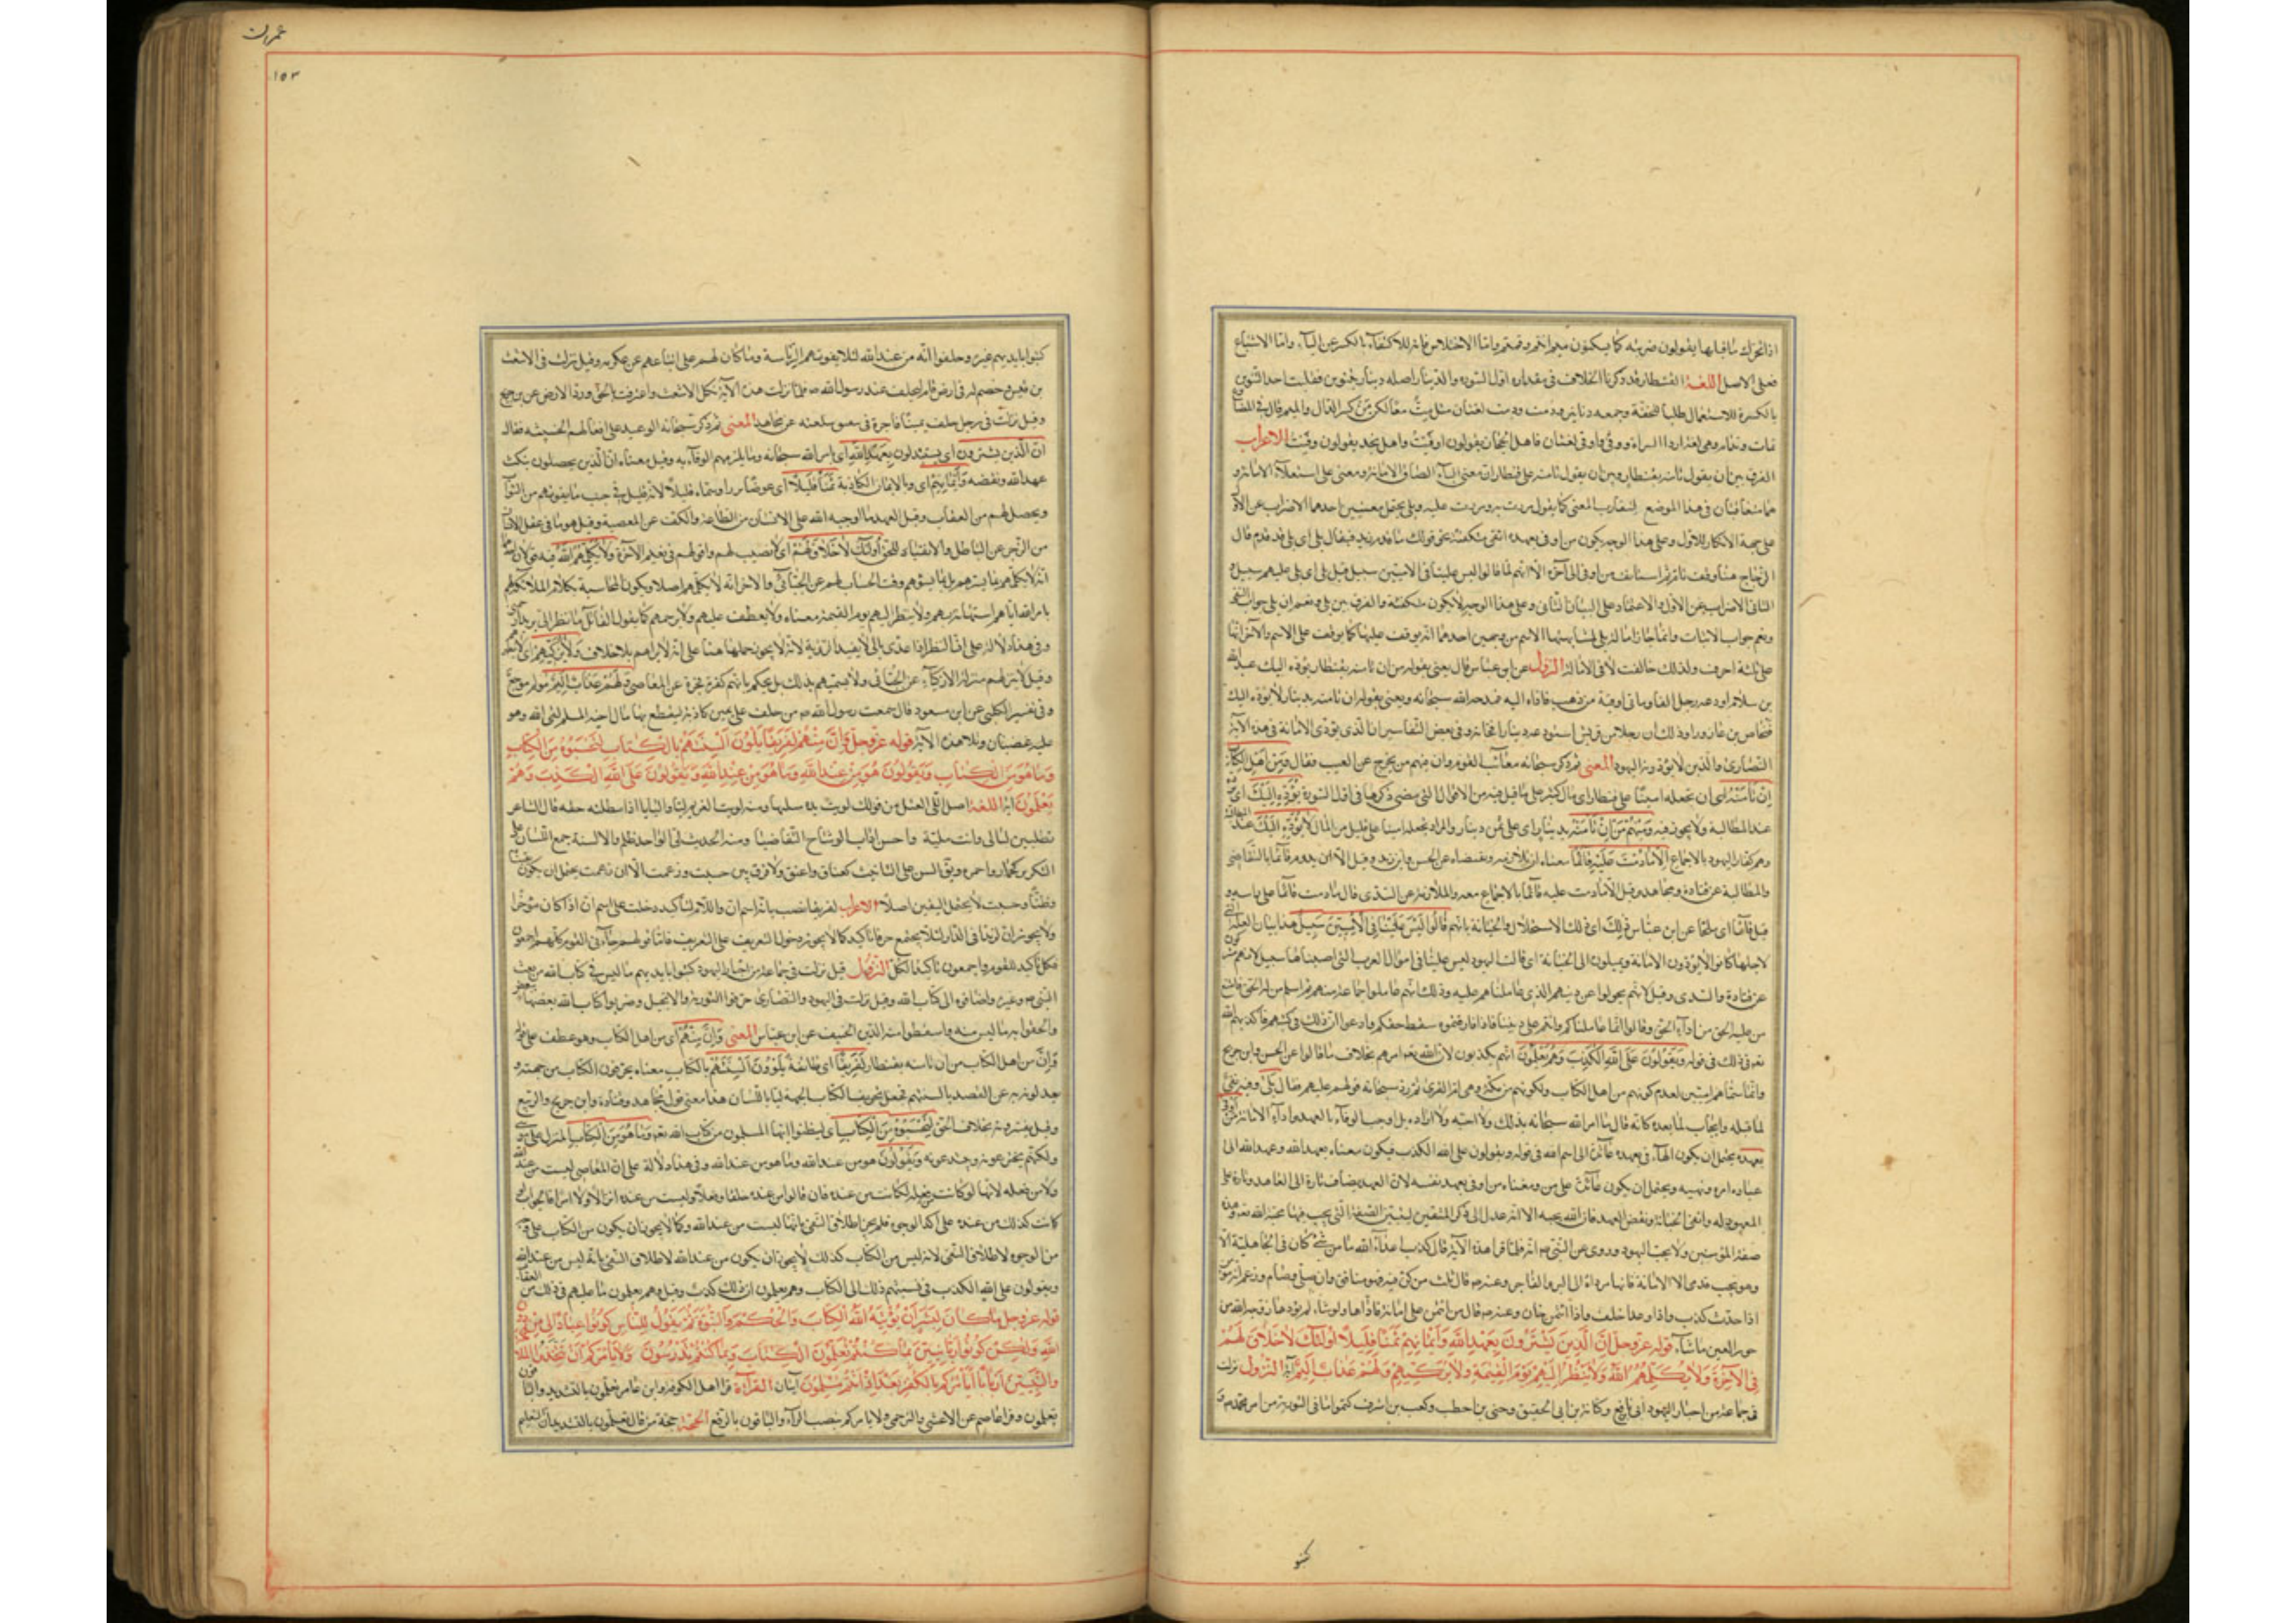 اذا تحرك ما قبلها يقولون ضربه كما يميلون ميم انتم وقمتم واما الاختلاس فانه للاكتفاء بالكسر عن الياء واما الاشباع
فعلى الاصل اللغة القنطار قد ذكرنا الخلاف في مقداره اول السورة والدينار اصله دنار بنونين فقلبت احدى النونين
بالكسرة للاستعمال طلبا للخفة وجمعه دنانير ودمت ودمت لغتان مثل مت
الاعراب
الفرق بين ان يقول تامنه بقنطار وبين ان يقول تامنه على قنطار ان معنى الباء الصاق الامانة ومعنى على استعلاء الامانة و
هما متعاقبان في هذا الموضع لتقارب المعنى كما يقول مررت به ومررت عليه وبلى يحتمل معنيين احدهما الاضراب عن الاو
على جهة الانكار للاول وعلى هذا الوجه يكون من اوفى بعهده اتقى مكتفية نحو قولك ما قدم زيد فيقال بلى اى بلى قد قدم قال
الزجاج هنا وقف تام ثم استانف من اوفى الى آخره الا انهم لما قالوا ليس علينا في الاميين سبيل قيل بلى اى بلى عليهم سبيل و
الثانى الاضراب عن الاول والاعتماد على البيان الثانى وعلى هذا الوجه لا يكون مكتفية والفرق بين بلى ونعم ان بلى جواب النفى
ونعم جواب الاثبات وانما جاز امالة بلى لمشابهتها الاسم من وجهين احدهما انه يوقف عليها كما يوقف على الاسم والآخر انها
على ثلثة احرف ولذلك خالفت لا فى الامالة النزول عن ابن عباس قال يعنى بقوله من ان تامنه بقنطار يؤده اليك عبد الله
بن سلام اودعه رجل الفا ومأتى اوقية من ذهب فاداه اليه فمدحه الله سبحانه ويعنى بقوله ان تامنه بدينار لا يؤده اليك
فنحاص بن عازورا وذلك ان رجلا من قريش استودعه دينارا فخانه وفى بعض التفاسير ان الذى يؤدى الامانة فى هذه الآية
النصارى والذين لا يؤدونه اليهود المعنى ثم ذكر سبحانه معائب القوم وان منهم من تحرج عن العيب فقال ومن اهل الكتاب
ان تامنه اى ان تجعله امينا على قنطار اى مال كثير على ما قيل فيه من الاقوال التى مضى ذكرها فى اول السورة يؤده اليك اى
عند المطالبة ولا يخون فيه ومنهم من ان تامنه بدينار اى على ثمن دينار والمراد تجعله امينا على قليل من المال لا يؤده اليك عند المطالبة
وهم كفار اليهود بالاجماع الا ما دمت عليه قائما معناه
والمطالبة عن قتادة ومجاهد وقيل الا ما دمت عليه قائما بالاجتماع معه والملازمة عن السدى قال ما دمت قائما على راسه و
قيل قائما اى ملحا عن ابن عباس ذلك اى ذلك الاستحلال والخيانة بانهم قالوا ليس علينا فى الاميين سبيل هذا بيان العلة
لاجلها كانوا لا يؤدون الامانة ويميلون الى الخيانة اى قالت اليهود ليس علينا فى اموال العرب التى اصبناها سبيل لانهم
عن قتادة والسدى وقيل لانهم تحولوا عن دينهم الذى عاملناهم عليه وذلك انهم عاملوا جماعة منهم ثم اسلم من له الحق فامتنع
من عليه الحق من اداء الحق وقالوا انما عاملناكم وانتم على ديننا فاذا فارقتموه سقط حقكم وادعوا ان ذلك فى كتبهم فاكذبهم الله
تعالى فى ذلك فى قوله ويقولون على الله الكذب وهم يعلمون انهم يكذبون لان الله تعالى امرهم بخلاف ما قالوا عن الحسن وابن جريج
وانما سماهم اميين لعدم كونهم من اهل الكتاب ولكونهم من مكة وهى ام القرى ثم رد سبحانه قولهم عليهم فقال بلى وفيه نفى
لما قبله وايجاب لما بعده كانه قال ما امر الله سبحانه بذلك ولا احبه ولا اراده بل اوجب الوفاء بالعهد واداء الامانة من اوفى
بعهده يحتمل ان يكون الهاء فى بعهده عائدة الى اسم الله فى قوله ويقولون على الله الكذب فيكون معناه بعهد الله وعهد الله الى
عباده امره ونهيه ويحتمل ان يكون عائدة على من ومعناه من اوفى بعهد نفسه لان العهد يضاف تارة الى العاهد وتارة على
المعهود له واتقى الخيانة ونقض العهد فان الله يحبه الا انه عدل الى ذكر المتقين ليبين الصفة التى يجب بها محبة الله تعالى وهذه
صفة المؤمنين ولا يحب اليهود وروى عن النبى ص انه لما قرا هذه الآية قال كذب اعداء الله ما من شئ كان فى الجاهلية الا
وهو تحت قدمى الا الامانة فانها مؤداة الى البر والفاجر وعنه ص قال ثلث من كن فيه فهو منافق وان صلى وصام وزعم انه مؤمن
اذا حدث كذب واذا وعد اخلف واذا ائتمن خان وعنه ص قال من ائتمن على امانة فاداها ولو شاء لم يؤدها زوجه الله من
حور العين ما شاء قوله عز وجل إن الذين يشترون بعهد الله وأيمانهم ثمنا قليلا أولئك لا خلاق لهم
فى الآخرة ولا يكلمهم الله ولا ينظر إليهم يوم القيمة ولا يزكيهم ولهم عذاب أليم آية النزول نزلت
فى جماعة من احبار اليهود ابى رافع وكنانة بن ابى الحقيق وحيى بن اخطب وكعب بن اشرف كتموا ما فى التورية من امر محمد ص و
كتبو
عمران
١٥٣
كتبوا بايديهم غيره وحلفوا انه من عند الله لئلا يفوتهم الرئاسة وما كان لهم على اتباعهم عن عكرمه وقيل نزلت فى الاشعث
بن قيس وخصم له فى ارض قام ليحلف عند رسول الله ص فلما نزلت هذه الآية نكل الاشعث واعترف بالحق ورد الارض عن ابن جريج
وقيل نزلت فى رجل حلف يمينا فاجرة فى تنفيق سلعته عن مجاهد المعنى ثم ذكر سبحانه الوعيد على افعالهم الخبيثه فقال
ان الذين يشترون اى يستبدلون بعهد الله اى بامر الله سبحانه وما يلزمهم الوفاء به وقيل معناه ان الذين يحصلون بنكث
عهد الله ونقضه وأيمانهم اى وبالايمان الكاذبة ثمنا قليلا اى عوضا نزرا وسماه قليلا لانه قليل فى جنب ما يفوتهم من الثواب
ويحصل لهم من العقاب وقيل العهد ما اوجبه الله على الانسان من الطاعة والكف عن المعصية وقيل هو ما فى عقل الانسان
من الزجر عن الباطل والانقياد للحق أولئك لا خلاق لهم اى لا نصيب لهم وافر لهم فى نعيم الآخرة ولا يكلمهم الله فيه قولان
انه لا يكلمهم بما يسرهم بل بما يسوؤهم وقت الحساب لهم عن الجبائى والآخر انه لا يكلمهم اصلا ويكون المحاسبة بكلام الملائكة لهم
بامر الله اياهم استهانة بهم ولا ينظر اليهم يوم القيمة معناه ولا يعطف عليهم ولا يرحمهم كما يقول القائل للغير انظر الى يريد ارحمنى
وفى هذا دلالة على ان النظر اذا عدى بالى لا يفيد الرؤية لانه لا يجوز حملها هنا على انه لا يراهم بلا خلاف ولا يزكيهم اى لا يطهرهم
وقيل لا ينزلهم منزلة الازكياء عن الجبائى وقيل لا يطهرهم بذلك بل يحكم بانهم كفرة فجرة عن القاضى ولهم عذاب اليم مولم موجع
وفى تفسير الكلبى عن ابن مسعود قال سمعت رسول الله ص من حلف على يمين كاذبة ليقطع بها مال اخيه المسلم لقى الله وهو
عليه غضبان وتلا هذه الآية قوله عز وجل وإن منهم لفريقا يلون ألسنتهم بالكتاب لتحسبوه من الكتاب
وما هو من الكتاب ويقولون هو من عند الله وما هو من عند الله ويقولون على الله الكذب وهم
يعلمون آية اللغة اصل اللى الفتل من قولك لويت يده اذا فتلتها ومنه لويت الغريم ليا وليانا اذا مطلته حقه قال الشاعر
تطيلين ليانى وانت ملية واحسن يا ذات الوشاح التقاضيا ومنه الحديث لى الواجد ظلم والالسنة جمع لسان على
التذكير كحمار واحمرة ويق السن على التانيث كعناق واعنق ولا فرق بين حسبت وزعمت الا ان زعمت يحتمل ان يكون يقينا
وظنا وحسبت لا يحتمل اليقين اصلا الاعراب لفريقا نصب بانه اسم ان واللام للتاكيد دخلت على اسم ان اذا كان مؤخرا
ولا يجوز ان لزيدا فى الدار لئلا يجتمع حرفا تاكيد كما لا يجوز دخول التعريف على التعريف فاما قولهم جاءنى القوم كلهم اجمعون
فكل تاكيد للقوم واجمعون تاكيد الكل النزول قيل نزلت فى جماعة من احبار اليهود كتبوا بايديهم ما ليس فى كتاب الله من نعت
النبى ص وغيره واضافوه الى كتاب الله وقيل نزلت فى اليهود والنصارى حرفوا التورية والانجيل وضربوا كتاب الله بعضه ببعض
والحقوا به ما ليس منه واسقطوا منه الدين الحنيف عن ابن عباس المعنى وإن منهم اى من اهل الكتاب وهو عطف على قوله
وإن من اهل الكتاب من ان تامنه بقنطار لفريقا اى طائفة يلوون ألسنتهم بالكتاب معناه يحرفون الكتاب عن جهته و
يعدلون به عن القصد بالسنتهم فجعل تحريف الكتاب عن الجهة ليا باللسان هذا معنى قول مجاهد وقتادة وابن جريج والربيع
وقيل يفسرونه بخلاف الحق لتحسبوه من الكتاب اى لتظنوا ايها المسلمون من كتاب الله تعالى وما هو من الكتاب المنزل على موسى
ولكنهم يخترعونه ويبتدعونه ويقولون هو من عند الله وما هو من عند الله وفى هذا دلالة على ان المعاصى ليست من عند الله
ولا من فعله لانها لو كانت من فعله لكانت من عنده
كانت كذلك من عنده على آكد الوجوه فلم يجز اطلاق النفى بانها ليست من عند الله وكما لا يجوز ان يكون من الكتاب على وجه
من الوجوه لاطلاق النفى لانه ليس من الكتاب كذلك لا يجوز ان يكون من عند الله لاطلاق النفى بانه ليس من عند الله
ويقولون على الله الكذب فى نسبتهم ذلك الى الكتاب وهم يعلمون ان ذلك كذب وقيل وهم يعلمون ما عليهم فى ذلك من العقاب
قوله عز وجل ما كان لبشر أن يؤتيه الله الكتاب والحكم والنبوة ثم يقول للناس كونوا عبادا لى من دون
الله ولكن كونوا ربانيين بما كنتم تعلمون الكتاب وبما كنتم تدرسون ولا يأمركم أن تتخذوا الملائكة
والنبيين أربابا أيأمركم بالكفر بعد إذ أنتم مسلمون آيتان القراءة قرا اهل الكوفة وابن عامر تعلمون بالتشديد والباقون
تعلمون وقرا عاصم عن الاعشى والبرجمى ولا يامركم بنصب الراء والباقون بالرفع الحجة حجة من قال تعلمون بالتشديد ان التعليم